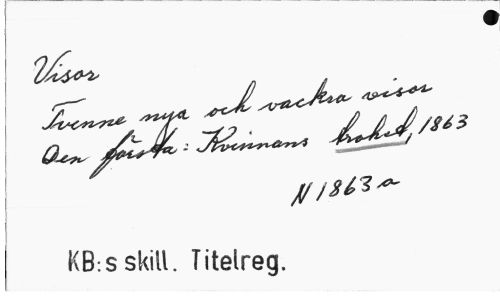 Visor
Tvenne nya och vackra visor
Den första: Kvinnans trohet, 1863
N 1863 a
KB:s skill. Titelreg.